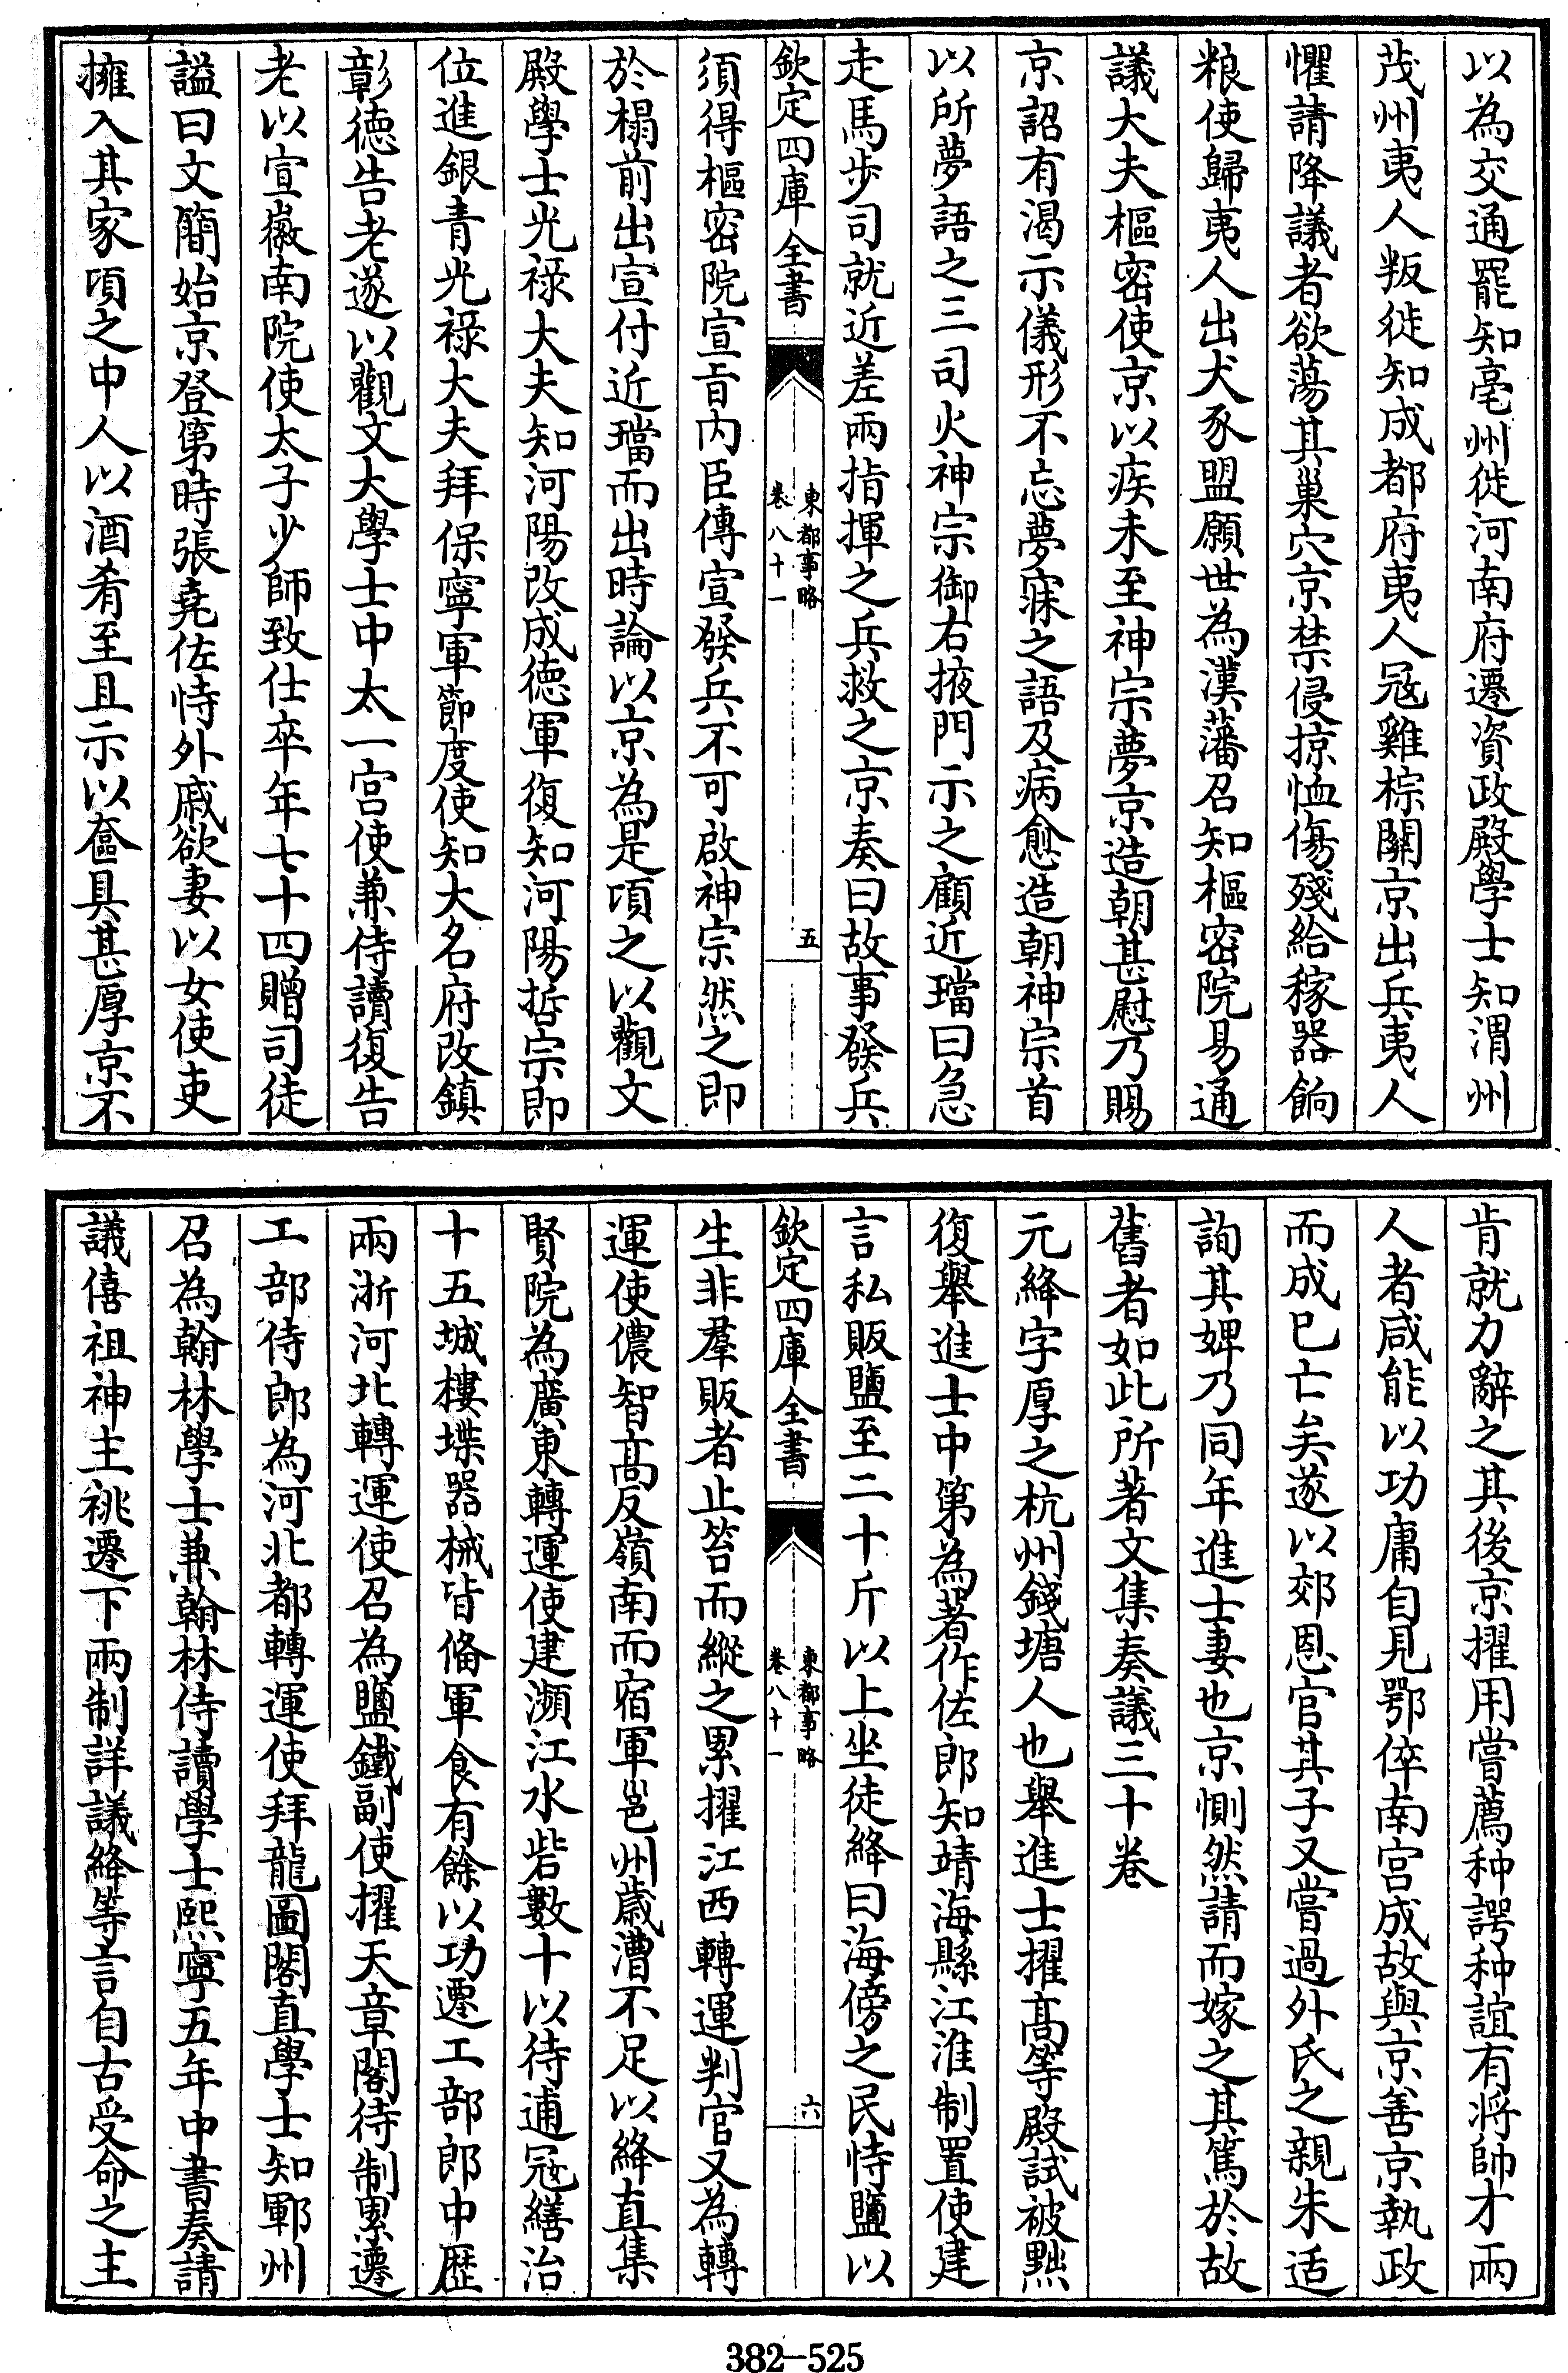 以為交通罷知亳州徙河南府遷資政殿學士知渭州
茂州夷人叛徙知成都府夷人冦雞棕關京出兵夷人
懼請降議者欲蕩其巢穴京禁侵掠恤傷殘給稼器餉
粮使歸夷人出犬豕盟願世為漢藩召知樞密院易通
議大夫樞密使京以疾未至神宗夢京造朝甚慰乃賜
京詔有渴示儀形不忘夢寐之語及病愈造朝神宗首
以所夢語之三司火神宗御右掖門示之顧近璫曰急
走馬步司就近差兩指揮之兵救之京奏曰故事發兵
欽定四庫全書
東都事略
卷八十一
五
須得樞密院宣㫖内臣傳宣發兵不可啟神宗然之即
於榻前出宣付近璫而出時論以京為是頃之以觀文
殿學士光祿大夫知河陽改成德軍復知河陽哲宗即
位進銀青光祿大夫拜保寧軍節度使知大名府改鎮
彰德告老遂以觀文大學士中太一宫使兼侍讀復告
老以宣徽南院使太子少師致仕卒年七十四贈司徒
謚曰文簡始京登第時張堯佐恃外戚欲妻以女使吏
擁入其家頃之中人以酒肴至且示以奩具甚厚京不
肯就力辭之其後京擢用嘗薦种諤种誼有將帥才兩
人者咸能以功庸自見鄂倅南宫成故與京善京執政
而成已亡矣遂以郊恩官其子又嘗過外氏之親朱适
詢其婢乃同年進士妻也京惻然請而嫁之其篤於故
舊者如此所著文集奏議三十卷
元絳字厚之杭州錢塘人也舉進士擢髙等殿試被黜
復舉進士中第為著作佐郎知靖海縣江淮制置使建
言私販鹽至二十斤以上坐徒絳曰海傍之民恃鹽以
欽定四庫全書
東都事略
卷八十一
六
生非羣販者止笞而縱之累擢江西轉運判官又為轉
運使儂智髙反嶺南而宿軍邕州歲漕不足以絳直集
賢院為廣東轉運使建瀕江水砦數十以待逋冦繕治
十五城樓堞器械皆備軍食有餘以功遷工部郎中歴
兩浙河北轉運使召為鹽鐵副使擢天章閣待制累遷
工部侍郎為河北都轉運使拜龍圖閣直學士知鄆州
召為翰林學士兼翰林侍讀學士熙寧五年中書奏請
議僖祖神主祧遷下兩制詳議絳等言自古受命之主
382-525